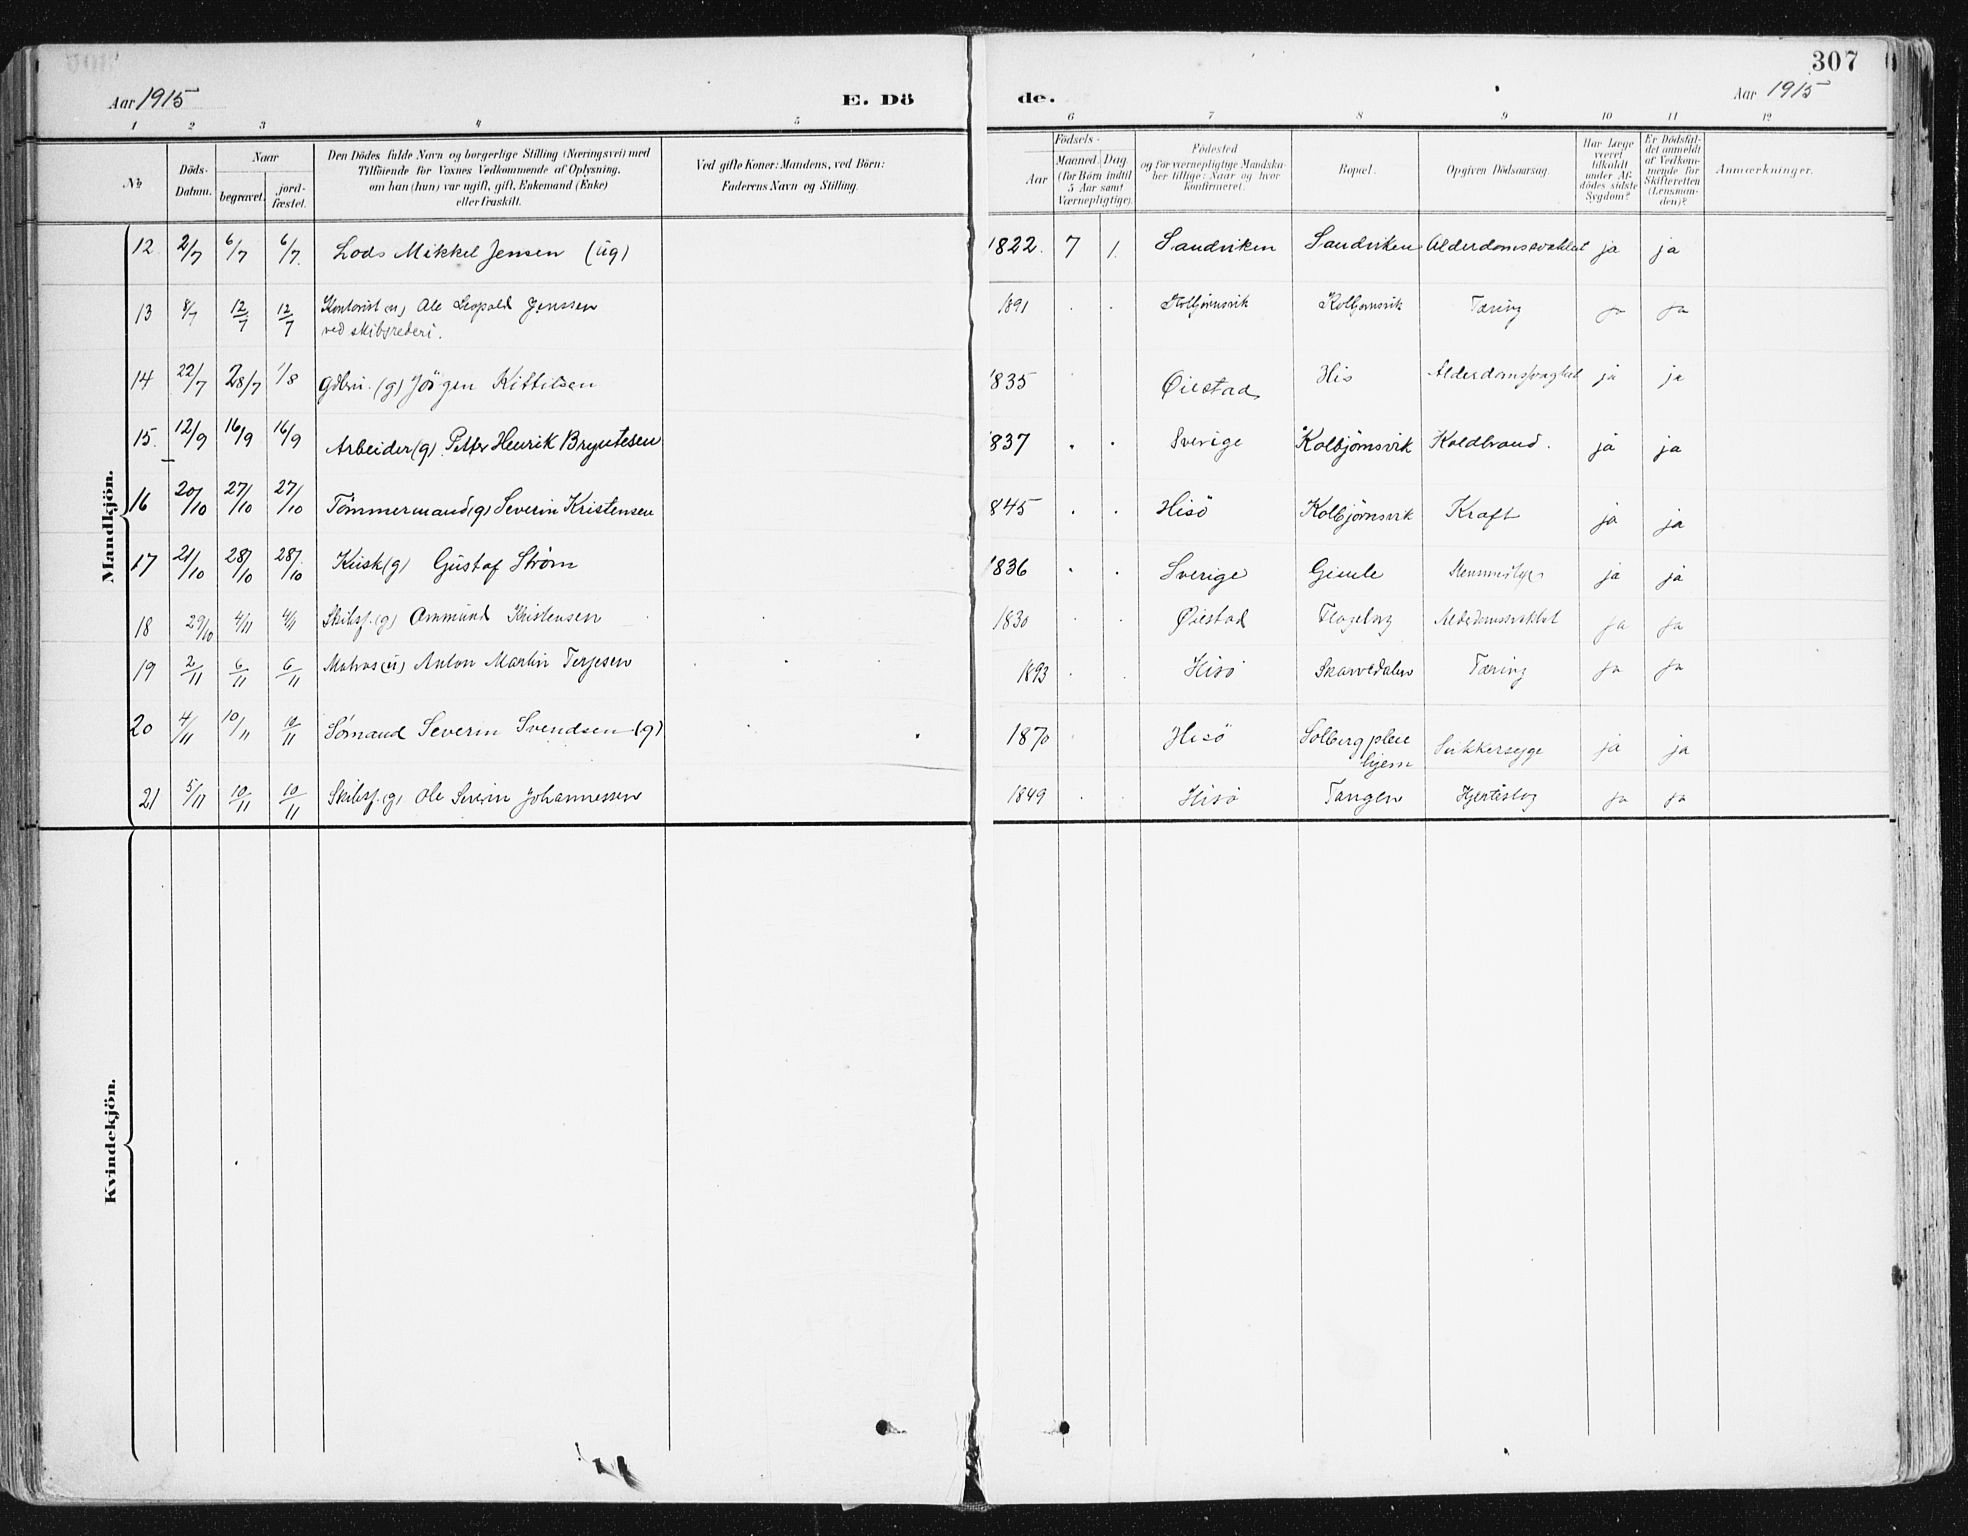 307
Aar 1915
E. Dö
de.
Aar 1915
1 2 3 4 5 6 7 8 9 10 11 12
№
Döds-
Datum.
Naar
begravet.
jord-
fæstet.
Den Dödes fulde Navn og borgerlige Stilling (Næringsvei) med
Tilföiende for Voxnes Vedkommende af Oplysning,
om han (hun) var ugift, gift, Enkemand (Enke)
eller fraskilt.
Ved gifte Koner: Mandens, ved Börn:
Faderens Navn og Stilling.
Födsels-
Aar
Maaned.
Dag
(for Börn indtil
5 Aar samt
Værnepligtige).
Födested
og for værnepligtige Mandska-
ber tillige: Naar og hvor
konfirmeret.
Bopæl.
Opgiven Dödsaarsag.
Har Læge
været
tilkaldt
under Af-
dödes sidste
Sygdom?
Er Dödsfal-
det anmeldt
af Vedkom-
mende for
Skifteretten
(Lensman-
den)?
Anmærkninger.
Mandkjön.
12 2/7 6/7 6/7. Lods Mikkel Jensen (ug) 1822. 7 1. Sandviken Sandviken Alderdomssvakhet ja ja
13 8/7 12/7 12/7 Kontorist (u) Ole Leopold Jenssen 1891 Kolbjørnsvik Kolbjørnsvik Tæring ja ja
ved skibsrederi.
14 22/7 28/7 1/8 (g) Jörgen Kittilsen 1835 Øiestad His Alderdomssvaghet ja ja
15. 12/9 16/9 16/9 Arbeider (g) Petter Henrik Bryntesen 1837 Sverige Kolbjörnsvik Koldbrand. ja ja
16 20/10 27/10 27/10 Tömmermand (g) Severin Kristensen 1845 Hisö Kolbjörnsvik Kræft ja ja
17 21/10 28/10 28/10 Kusk (g) Gustaf Strøm 1836 Sverige Gimle ja ja
18 29/10 4/11 4/11 Skibsf. (g) Ommund Kristensen 1830 Øiestad Alderdomssvakhet ja ja
19 2/11 6/11 6/11 Matros (u) Anton Martin Terjesen 1893 Hisö Skarvedalen Tæring ja ja
20 4/11 10/11 10/11 Sømand Severin Svendsen (g) 1870 Hisö Solberg pleie Sukkersyge ja ja
hjem
21 5/11 10/11 10/11 Skibsf. (g) Ole Severin Johannessen 1849 Hisö Tangen Hjerteslag ja ja
Kvindekjön.